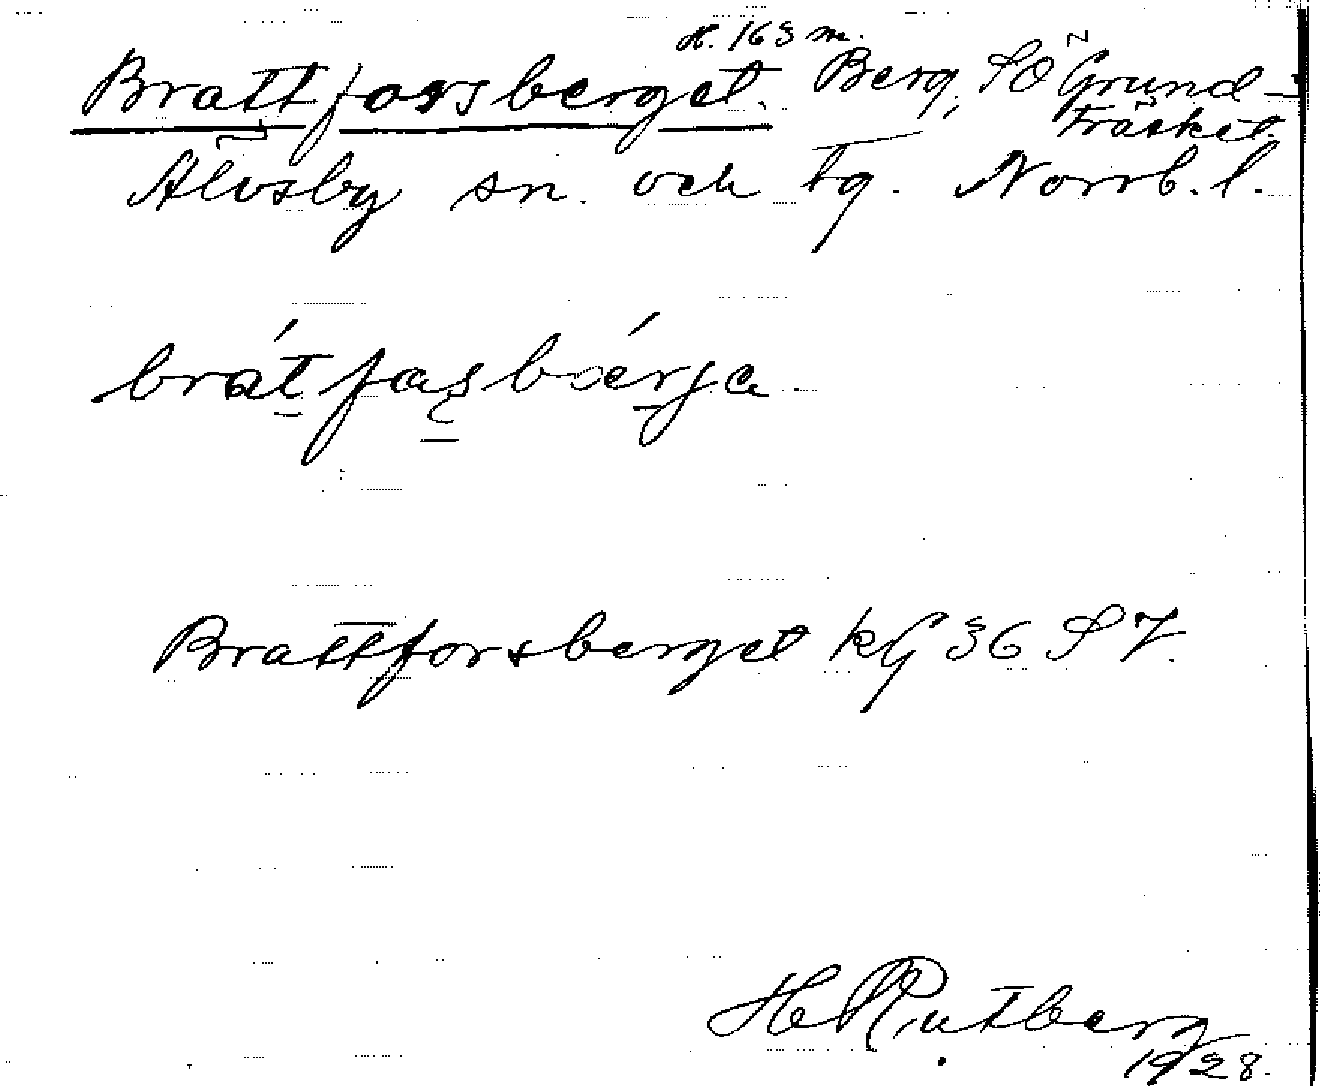 H. 163 m.
Brattforsberget. Berg, SO Grund-
träsket.
Älvsby sn. och tg. Norrb. l.
Brattforsberget kg 36 S 7.
H Rutberg
1928.